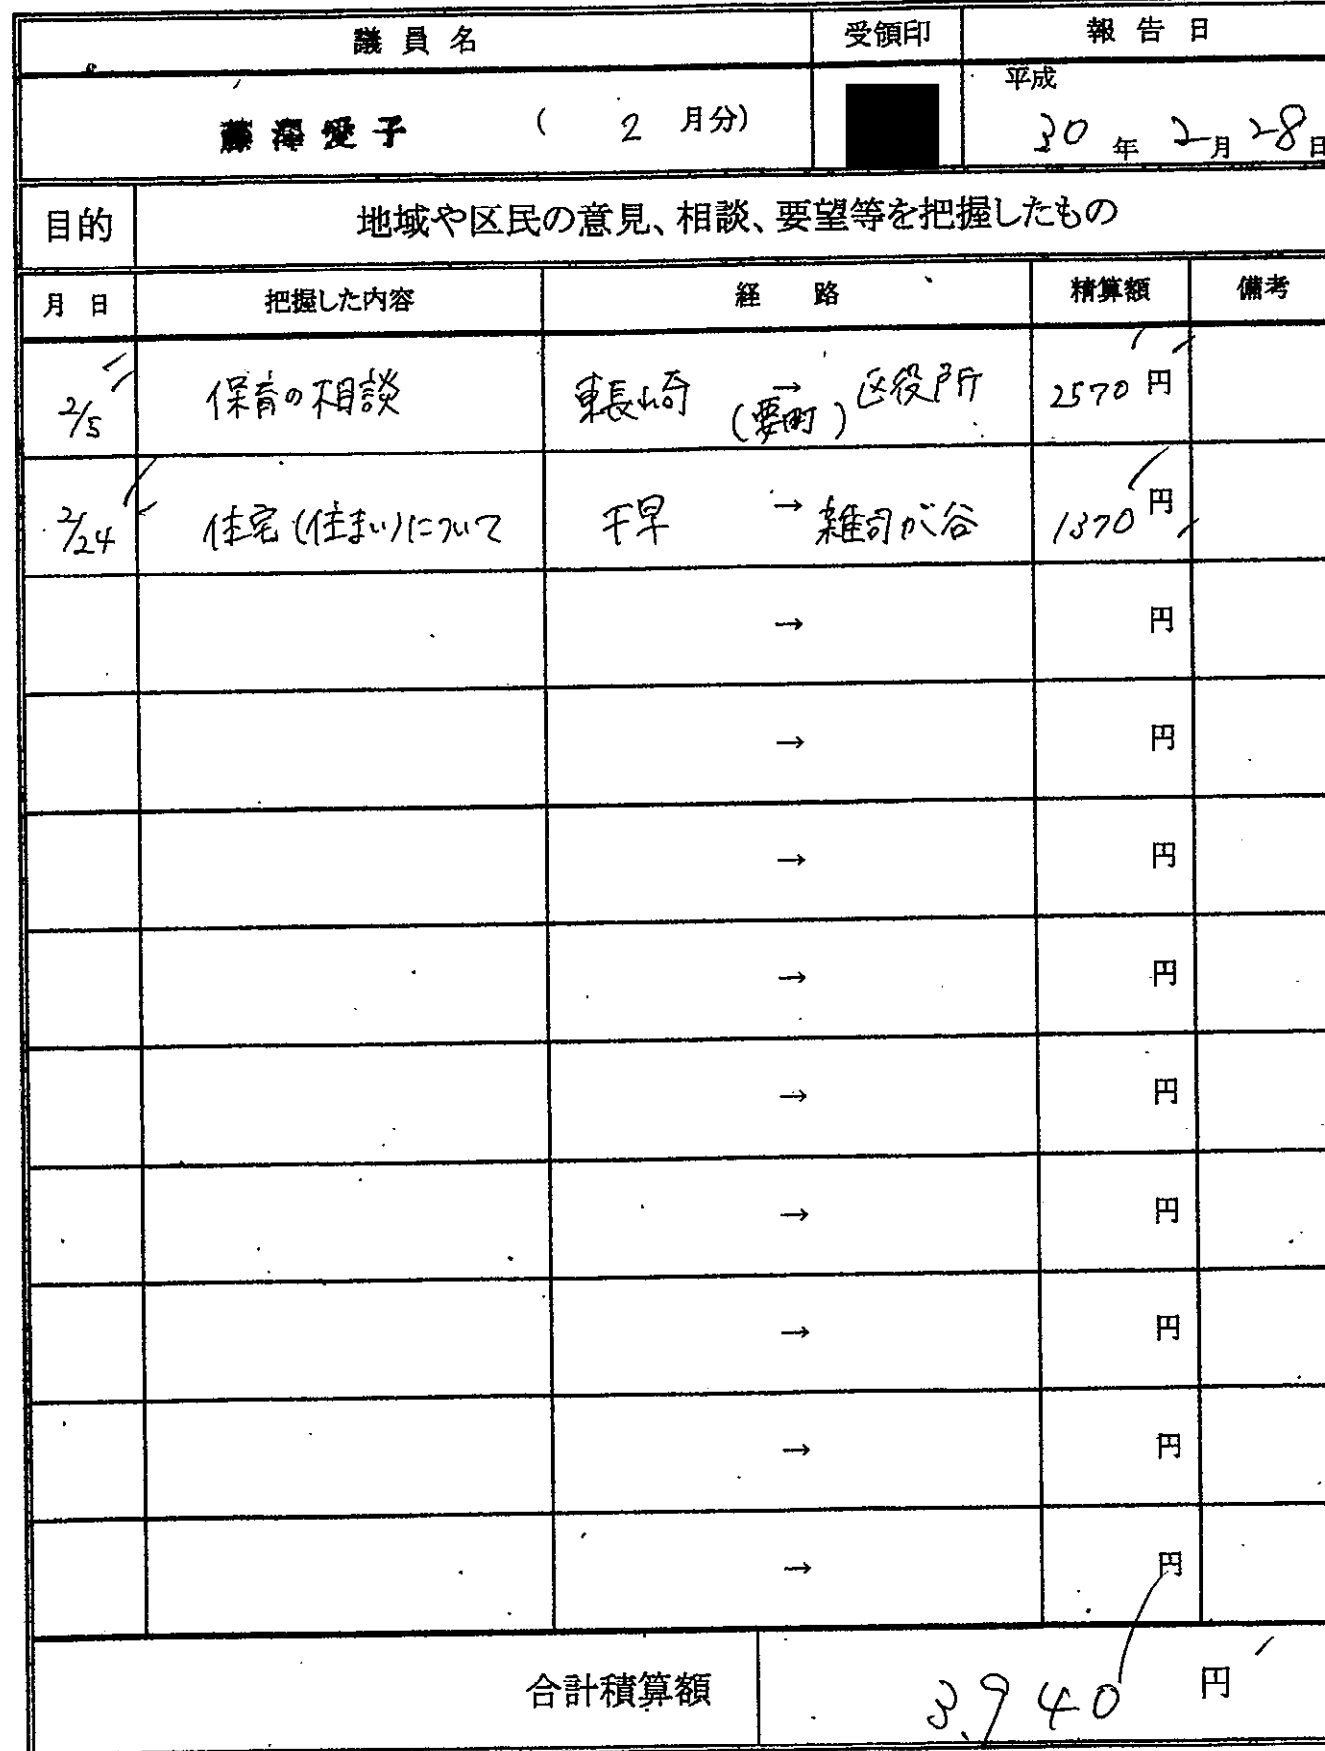 議員名 受領印 報告日
藤澤愛子 ( 2 月分) 平成 30 年 2 月 28 日
目的 地域や区民の意見、相談、要望等を把握したもの
月 日 把握した内容 経 路 精算額 備考
2/5 保育の相談 東長崎 → (要町) 区役所 2570 円
2/24 住宅(住まい)について 千早 → 雑司が谷 1370 円
→ 円
→ 円
→ 円
→ 円
→ 円
→ 円
→ 円
→ 円
→ 円
合計積算額 3,940 円